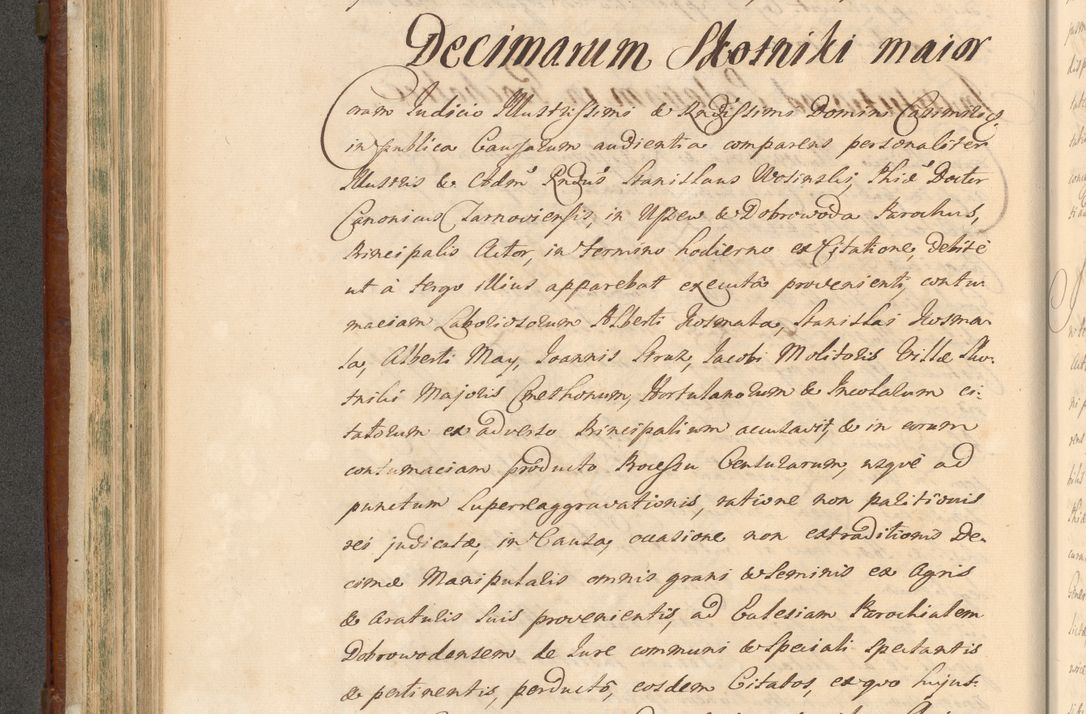 Decimarum Skotniki maior
Coram Judicio Illustrissimi & Rndissimi Domini Casimiri
in publica Causarum audientia comparens personaliter
Illustris & Codm̃ Rndus Stanislaus Wosinski, Phiæ Doctor
Canonicus Tarnoviensis, in Uszew & Dobrowoda Parochus,
Principalis Actor, in termino hodierno ex Citatione, debite
ut à tergo illius apparebat executa provenienti, contu-
maciam Laboriosorum Alberti Kosmala, Stanislai Kosma-
la, Alberti May, Joannis Struz, Jacobi Molitoris Villæ Sko-
tniki Majoris Cmethonum, Hortulanorum & Incolarum ci-
tatorum ex adverso Principalium accusavit, & in eorum
contumaciam producto Processu Censurarum, usque ad
punctum Superreaggravationis, ratione non paritionis
rei judicatæ, in Causa, occasione non extraditionis De-
cimæ Manipularis omnis grani & Seminis ex Agris
& Araturis suis provenientis, ad Ecclesiam Parochialem
Dobrowodensem de Jure communi & speciali spectantis
& pertinentis, perducto, eosdem Citatos, ex quo hujus-